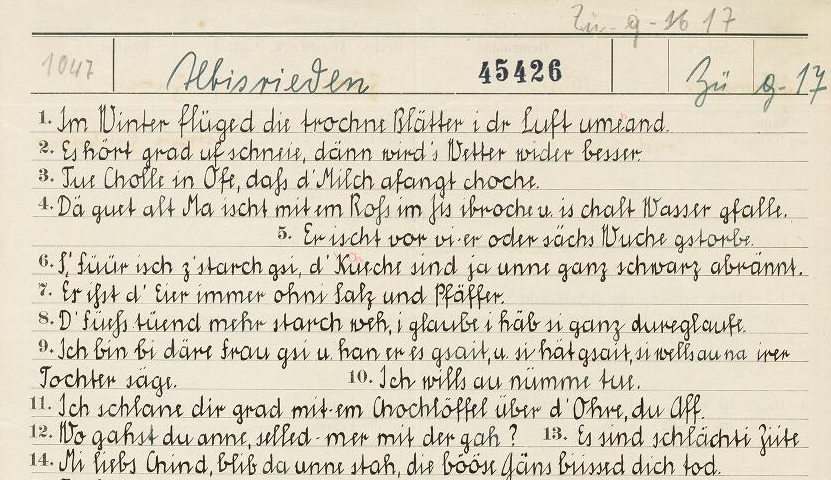 Zü - g - 16 17
1047 Albisrieden 45426 Zü g - 17
1. Im Winter flüged die trochne Blätter i dr Luft umeand.
2. Es hört grad uf schneie, dänn wird's Wetter wider besser.
3. Tue Cholle in Ofe, daß d'Milch afangt choche.
4. Dä guet alt Ma ischt mit em Roß im Jis ibroche u. is chalt Wasser gfalle.
5. Er ischt vor vi·er oder sächs Wuche gstorbe.
6. S'Füür isch z'starch gsi, d'Kueche sind ja unne ganz schwarz abrännt.
7. Er ißt d'Eier immer ohni Salz und Pfäffer.
8. D'Füeß tüend mehr starch weh, i glaube i häb si ganz dureglaufe.
9. Ich bin bi däre Frau gsi u. han er es gsait, u. si hät gsait, si wells au na irer
Tochter säge. 10. Ich wills au nümme tue.
11. Ich schlane dir grad mit em Chochlöffel über d'Ohre, du Aff.
12. Wo gahst du anne, selled-mer mit der gah? 13. Es sind schlächti Ziite
14. Mi liebs Chind, blib da unne stah, die bööse Gäns biissed dich tod.